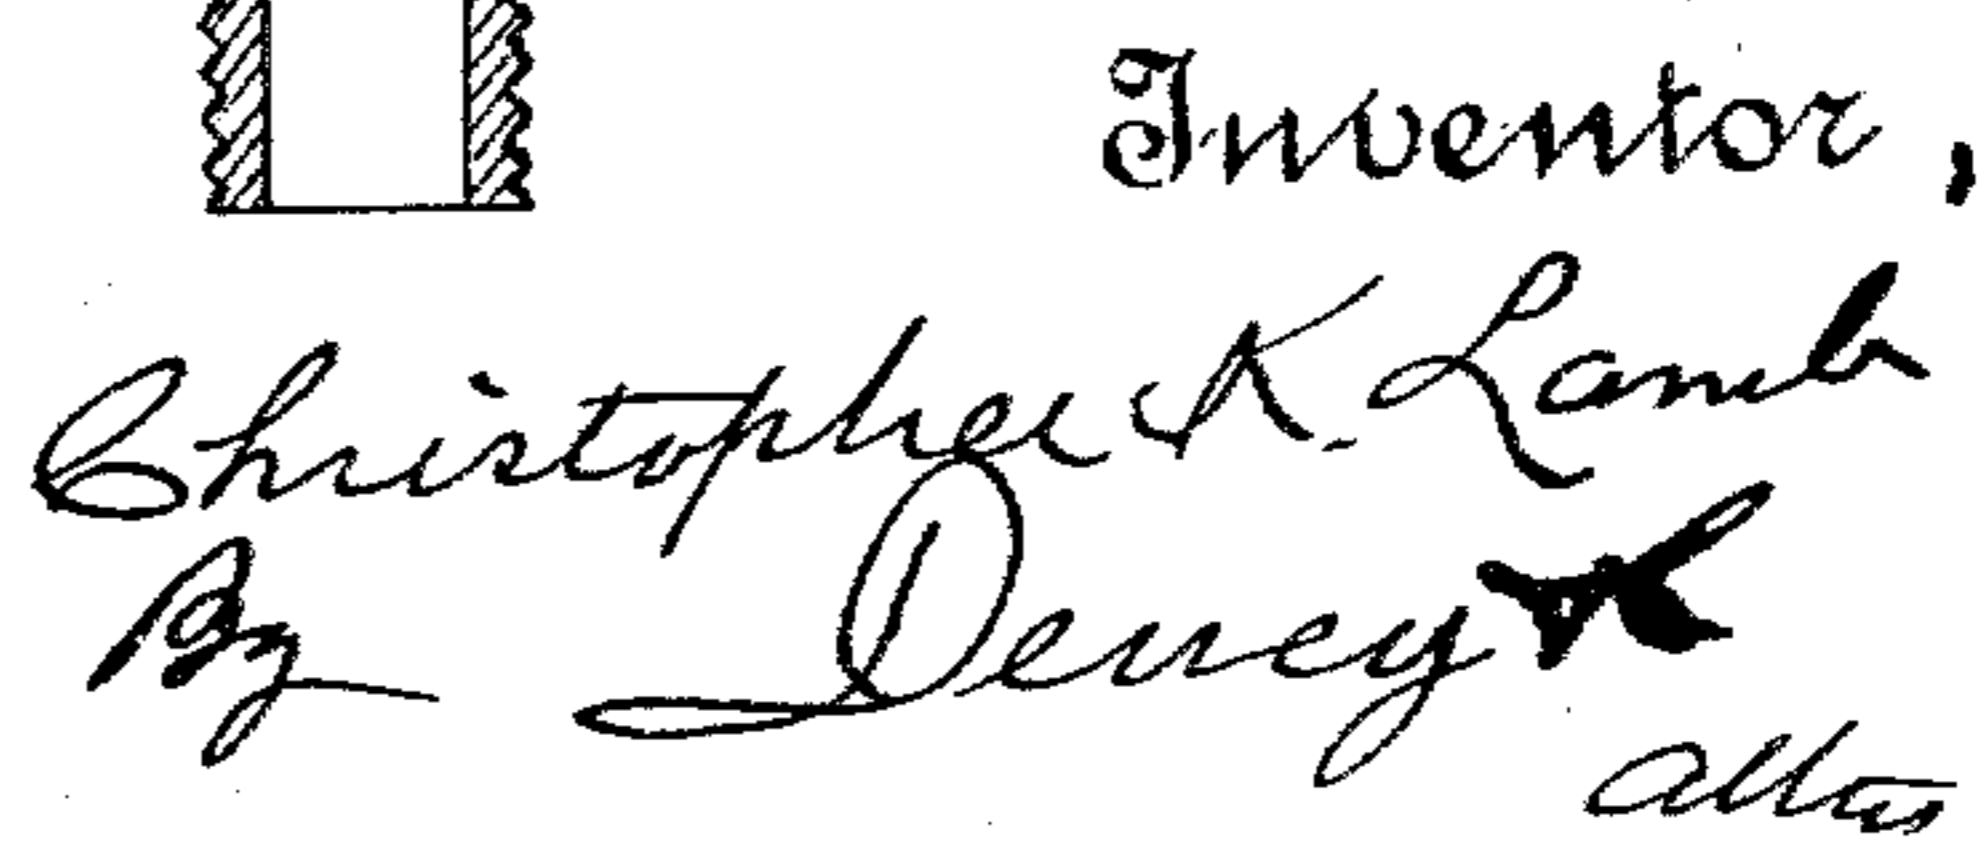 Inventor,
Christopher K. Lamb
By Dewey &
attys